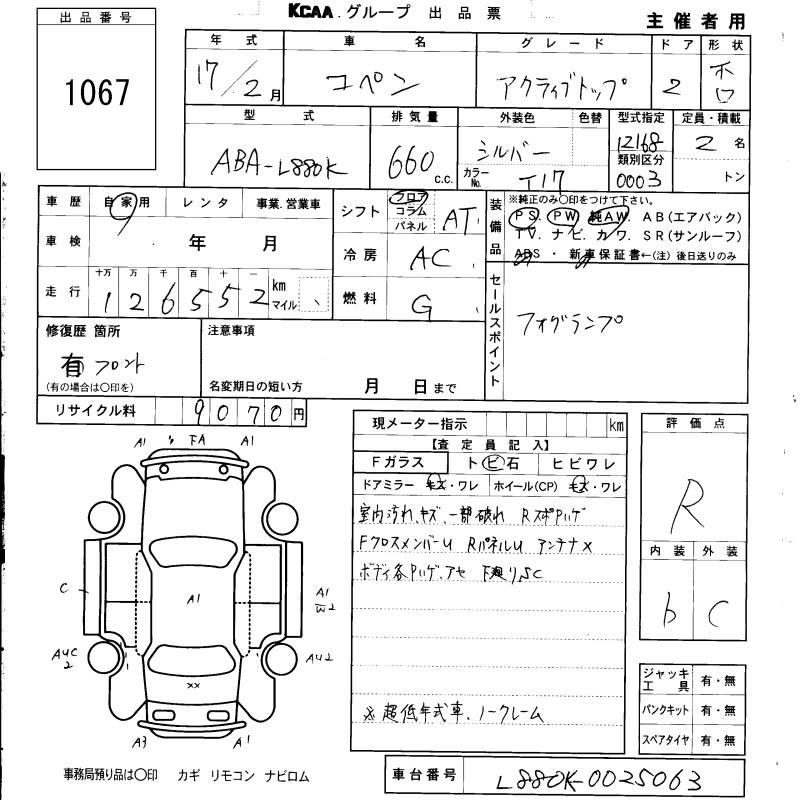 KCAA グループ 出品票
主催者用
出品番号
1067
年式 車名 グレード ドア 形状
17/2月 コペン アクティブトップ 2 ホロ
型式 排気量 外装色 色替 型式指定 定員・積載
ABA-L880K 660 c.c. シルバー 12168 2 名
カラーNo. T17 類別区分 0003 トン
車歴 自家用 レンタ 事業.営業車
車検 年 月
走行 十万 万 千 百 十 一
1 2 6 5 5 2 km マイル
シフト フロア コラム パネル AT
冷房 AC
燃料 G
装備品
※純正のみ○印をつけて下さい。
PS. PW. 純AW. AB(エアバック)
TV. ナビ. カワ. SR(サンルーフ)
ABS ・ 新車保証書←(注)後日送りのみ
セールスポイント
フォグランプ
修復歴 箇所
有 フロント
(有の場合は○印を)
注意事項
名変期日の短い方 月 日まで
リサイクル料 9070円
現メーター指示 km
【査定員記入】
Fガラス トビ石 ヒビワレ
ドアミラー キズ・ワレ ホイール(CP) キズ・ワレ
室内汚れ、キズ、一部破れ RスポPハゲ
FクロスメンバーU RパネルU アンテナX
ボディ各Pハゲ.アセ 下廻りSC
※超低年式車.ノークレーム
評価点
R
内装 外装
b C
ジャッキ工具 有・無
パンクキット 有・無
スペアタイヤ 有・無
A1 FA A1
C A1 A1
W2
AUC
2
AU2
XX
A3 A1
事務局預り品は○印 カギ リモコン ナビロム
車台番号 L880K-0025063